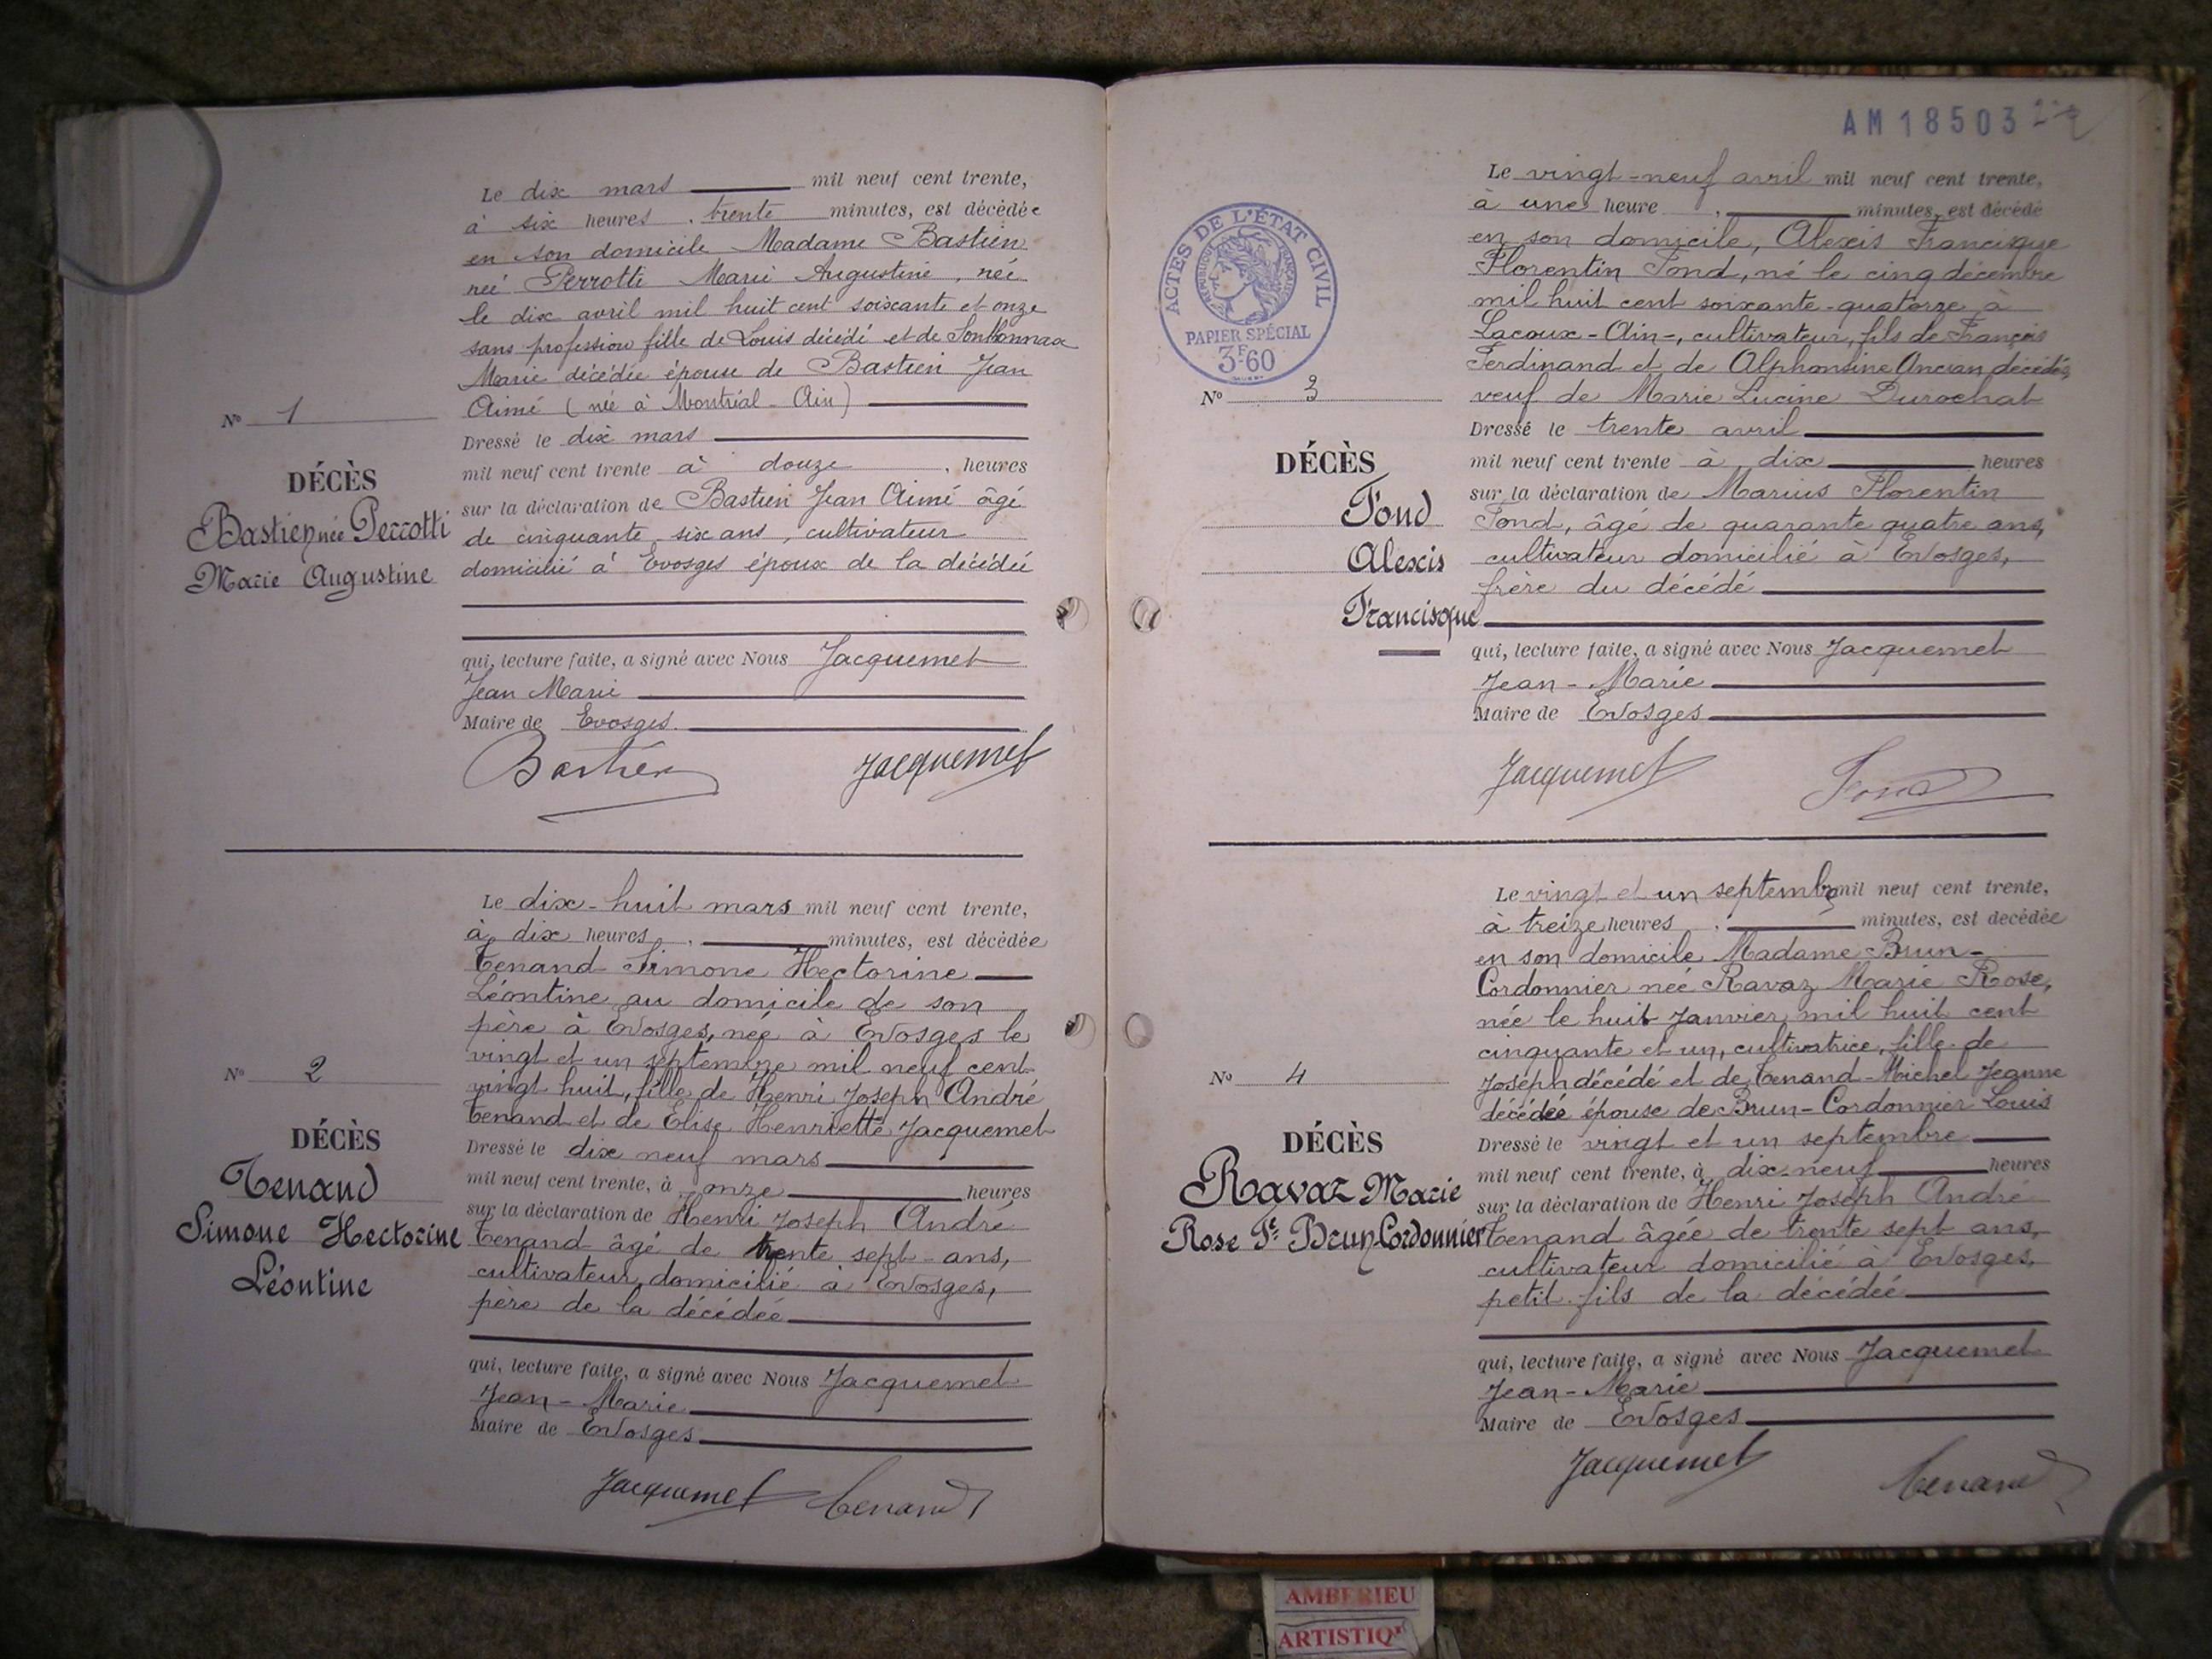 Le dix mars mil neuf cent trente,
à six heures, trente minutes, est décédée
en son domicile Madame Bastien
née Perrotti Marie Augustine, née
le dix avril mil huit cent soixante et onze
sans profession fille de Louis décédé et de Sonthonnax
Marie décédée épouse de Bastien Jean
Aimé (née à Montréal - Ain)
Dressé le dix mars
mil neuf cent trente à douze, heures
sur la déclaration de Bastien Jean Aimé âgé
de cinquante six ans, cultivateur
domicilié à Evosges époux de la décédée
qui, lecture faite, a signé avec Nous Jacquemet
Jean Marie
Maire de Evosges.
Bastien Jacquemet
N° 1
DÉCÈS
Bastien née Perrotti
Marie Augustine
Le dix-huit mars mil neuf cent trente,
à dix heures, minutes, est décédée
Tenand Simone Hectorine
Léontine au domicile de son
père à Evosges, née à Evosges le
vingt et un septembre mil neuf cent
vingt huit, fille de Henri Joseph André
Tenand et de Elise Henriette Jacquemet
Dressé le dix neuf mars
mil neuf cent trente, à onze heures
sur la déclaration de Henri Joseph André
Tenand âgé de trente sept ans,
cultivateur domicilié à Evosges,
père de la décédée
qui, lecture faite, a signé avec Nous Jacquemet
Jean-Marie
Maire de Evosges
Jacquemet Tenand
N° 2
DÉCÈS
Tenand
Simone Hectorine
Léontine
AM 18503
Le vingt-neuf avril mil neuf cent trente,
à une heure, minutes, est décédé
en son domicile, Alexis Francisque
Florentin Fond, né le cinq décembre
mil huit cent soixante-quatorze à
Lacoux-Ain-, cultivateur, fils de François
Ferdinand et de Alphonsine Ancian décédés,
veuf de Marie Lucine Durochat
Dressé le trente avril
mil neuf cent trente à dix heures
sur la déclaration de Marius Florentin
Fond, âgé de quarante quatre ans,
cultivateur domicilié à Evosges,
frère du décédé
qui, lecture faite, a signé avec Nous Jacquemet
Jean-Marie
Maire de Evosges
Jacquemet Fond
ACTES DE L'ÉTAT CIVIL
RÉPUBLIQUE FRANÇAISE
PAPIER SPÉCIAL
3F60
N° 3
DÉCÈS
Fond
Alexis
Francisque
Le vingt et un septembre mil neuf cent trente,
à treize heures, minutes, est décédée
en son domicile Madame Brun-
Cordonnier née Ravaz Marie Rose,
née le huit Janvier mil huit cent
cinquante et un, cultivatrice, fille de
Joseph décédé et de Tenand-Michel Jeanne
décédée épouse de Brun-Cordonnier Louis
Dressé le vingt et un septembre
mil neuf cent trente, à dix-neuf heures
sur la déclaration de Henri Joseph André
Tenand âgée de trente sept ans,
cultivateur domicilié à Evosges,
petit-fils de la décédée
qui, lecture faite, a signé avec Nous Jacquemet
Jean-Marie
Maire de Evosges
Jacquemet Tenand
N° 4
DÉCÈS
Ravaz Marie
Rose Fe Brun-Cordonnier
AMBERIEU
ARTISTIQ